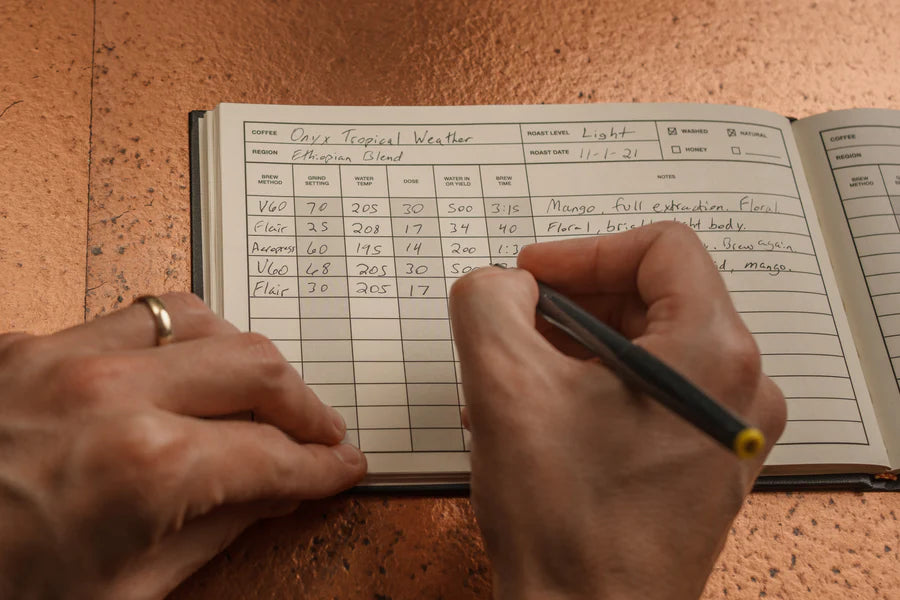 COFFEE Onyx Tropical Weather ROAST LEVEL Light WASHED NATURAL
REGION Ethiopian Blend ROAST DATE 11-1-21 HONEY
BREW METHOD GRIND SETTING WATER TEMP DOSE WATER IN OR YIELD BREW TIME NOTES
V60 70 205 30 500 3:15 Mango, full extraction. Floral
Flair 25 208 17 34 40 Floral, body.
Aeropress 60 195 14 200 Brew again
V60 68 205 30 mango.
Flair 30 205 17
COFFEE
REGION
BREW METHOD